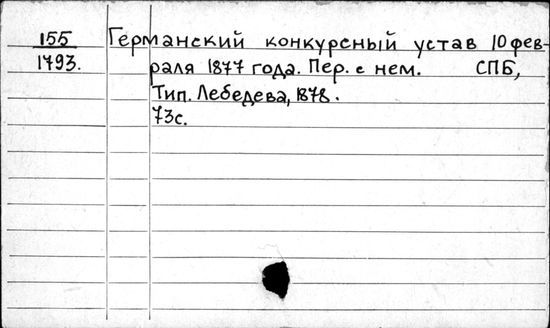 155 Германский конкурсный устав 10 фев-
1793. раля 1877 года. Пер. с нем. СПБ,
Тип. Лебедева, 1878.
73с.